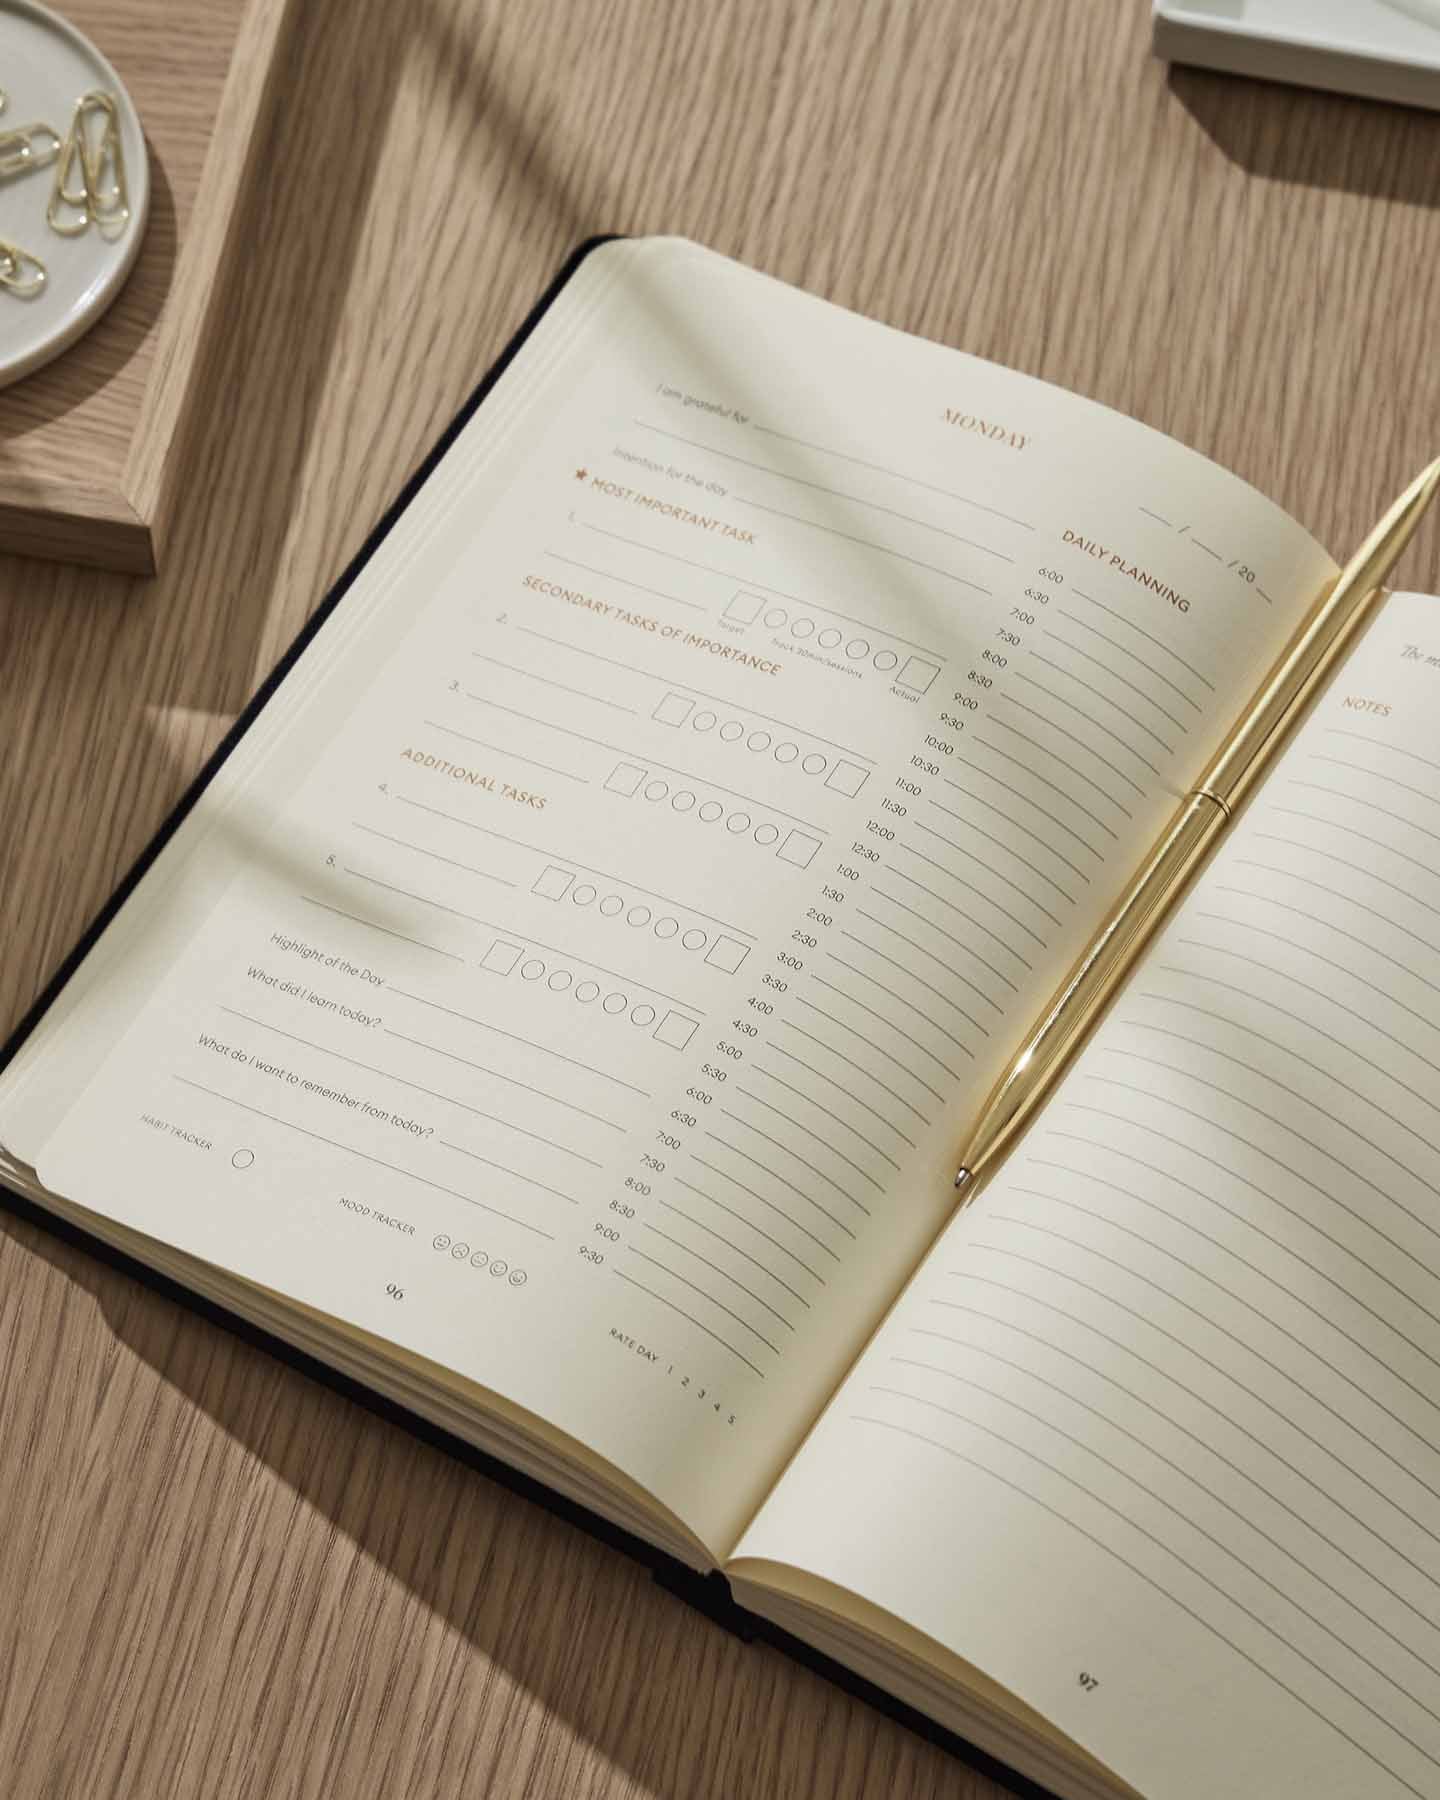 MONDAY
__ / __ / 20 __
I am grateful for
Intention for the day
★ MOST IMPORTANT TASK
1.
Target
Track 30min/sessions
Actual
SECONDARY TASKS OF IMPORTANCE
2.
3.
ADDITIONAL TASKS
4.
5.
Highlight of the Day
What did I learn today?
What do I want to remember from today?
HABIT TRACKER
MOOD TRACKER
96
DAILY PLANNING
6:00
6:30
7:00
7:30
8:00
8:30
9:00
9:30
10:00
10:30
11:00
11:30
12:00
12:30
1:00
1:30
2:00
2:30
3:00
3:30
4:00
4:30
5:00
5:30
6:00
6:30
7:00
7:30
8:00
8:30
9:00
9:30
RATE DAY 1 2 3 4 5
The
NOTES
97